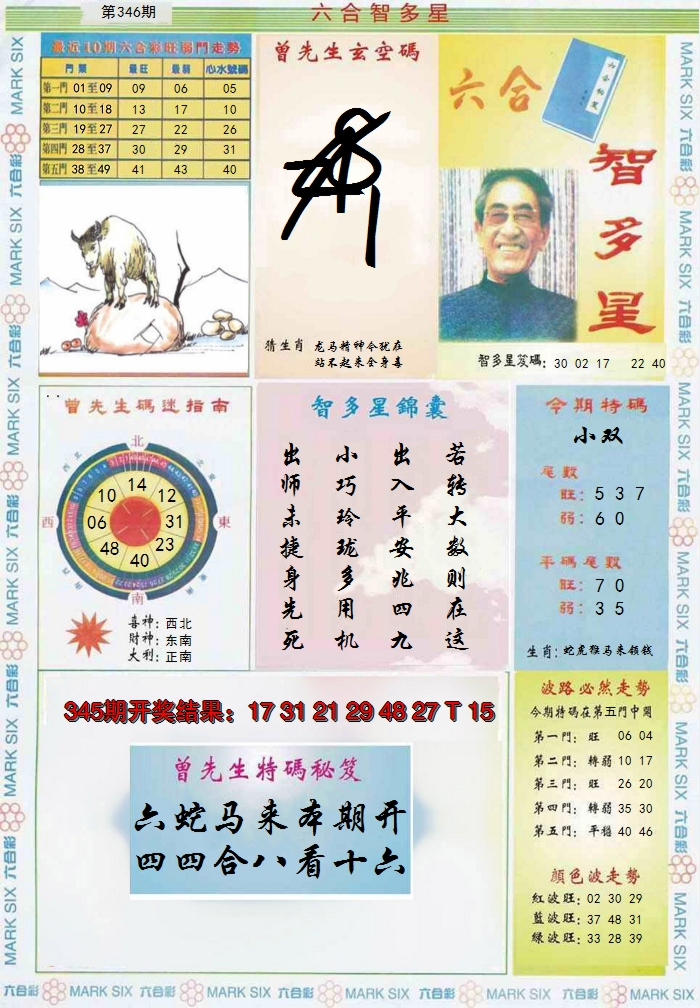 第346期
六合智多星
最近10期六合彩旺弱門走勢
門類 最旺 最弱 心水號碼
第一門 01至09 09 06 05
第二門 10至18 13 17 10
第三門 19至27 27 22 26
第四門 28至37 30 29 31
第五門 38至49 41 43 40
曾先生玄空碼
猜生肖 龙马精神今犹在
站不起来全身毒
六合
智多星
智多星笈碼: 30 02 17 22 40
曾先生碼迷指南
北
西
東
南
14
12
31
23
40
48
06
10
喜神: 西北
财神: 东南
大利: 正南
智多星錦囊
若转大数则在这
出入平安兆四九
小巧玲珑多用机
出师未捷身先死
今期特碼
小双
尾數
旺: 5 3 7
弱: 6 0
平碼尾數
旺: 7 0
弱: 3 5
生肖: 蛇虎雅马来领钱
345期开奖结果：17 31 21 29 48 27 T 15
曾先生特碼秘笈
六蛇马来本期开
四四合八看十六
波路必然走勢
今期特碼在第五門中開
第一門: 旺 06 04
第二門: 轉弱 10 17
第三門: 旺 26 20
第四門: 轉弱 35 30
第五門: 平穩 40 46
顏色波走勢
紅波旺: 02 30 29
藍波旺: 37 48 31
綠波旺: 33 28 39
六合彩 MARK SIX 六合彩 MARK SIX 六合彩 MARK SIX 六合彩 MARK SIX 六合彩 MARK SIX